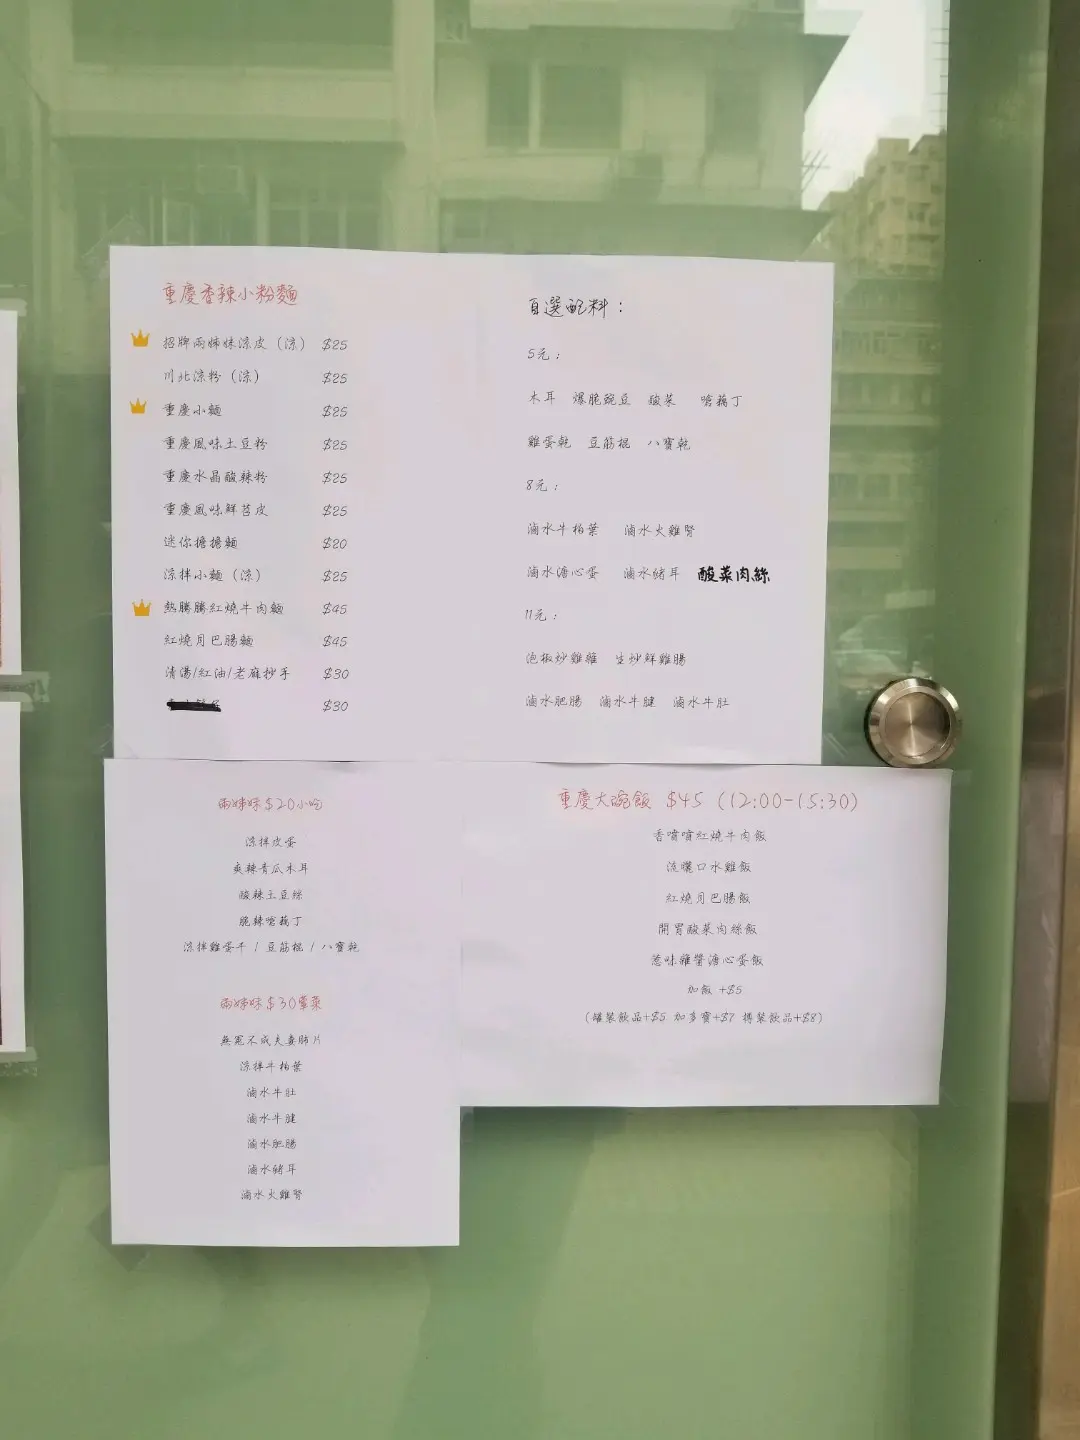 重慶香辣小粉麵
招牌兩姊妹涼皮（涼） $25
川北涼粉（涼） $25
重慶小麵 $25
重慶風味土豆粉 $25
重慶水晶酸辣粉 $25
重慶風味鮮苕皮 $25
迷你擔擔麵 $20
涼拌小麵（涼） $25
熱騰騰紅燒牛肉麵 $45
紅燒月巴腸麵 $45
清湯/紅油/老麻抄手 $30
$30
自選配料：
5元：
木耳 爆脆豌豆 酸菜 嗆藕丁
雞蛋乾 豆筋棍 八寶乾
8元：
滷水牛柏葉 滷水火雞腎
滷水溏心蛋 滷水豬耳 酸菜肉絲
11元：
泡椒炒雞雜 生炒鮮雞腸
滷水肥腸 滷水牛腱 滷水牛肚
兩姊妹$20小吃
涼拌皮蛋
爽辣青瓜木耳
酸辣土豆絲
脆辣嗆藕丁
涼拌雞蛋干 / 豆筋棍 / 八寶乾
兩姊妹$30葷菜
無冤不成夫妻肺片
涼拌牛柏葉
滷水牛肚
滷水牛腱
滷水肥腸
滷水豬耳
滷水火雞腎
重慶大碗飯 $45 (12:00-15:30)
香噴噴紅燒牛肉飯
流曬口水雞飯
紅燒月巴腸飯
開胃酸菜肉絲飯
惹味雜醬溏心蛋飯
加飯 +$5
(罐裝飲品+$5 加多寶+$7 樽裝飲品+$8)